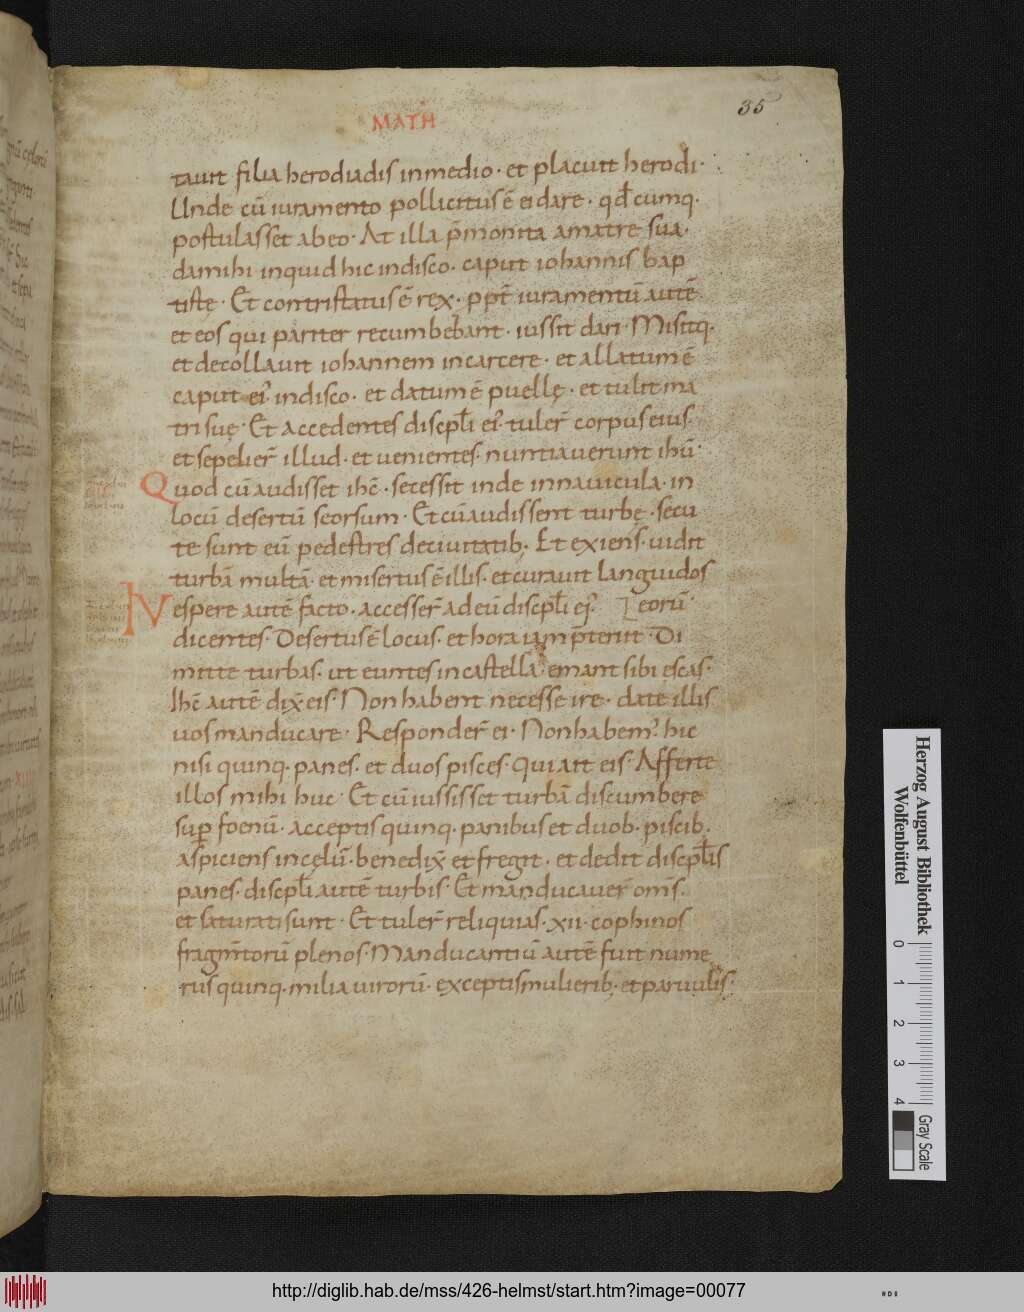 35
MATH
tauit filia herodiadis in medio · et placuit herodi ·
Unde cū iuramento pollicitus ē ei dare · qđ cumq·
postulasset ab eo · At illa p̄monita a matre sua ·
da mihi inquid hic in disco · caput iohannis bap
tistę · Et contristatus ē rex · ppt̄ iuramentū autē
et eos qui pariter recumbebant · iussit dari · Misitq·
et decollauit iohannem in carcere · et allatum ē
caput ei' in disco · et datum ē puellę · et tulit ma
tri suę · Et accedentes discipl̄i ei' tuler̄ corpus eius ·
et sepelier̄ illud · et uenientes nuntiauerunt ihū ·
Quod cū audisset ihc̄ · secessit inde in nauicula · in
locū desertū seorsum · Et cū audissent turbę · secu
te sunt eū pedestres de ciuitatib· Et exiens · uidit
turbā multā · et misertus ē illis · et curauit languidos
Vespere autē facto · accesser̄ ad eū discipl̄i ei' eorū
dicentes · Desertus ē locus · et hora iam p̄teriit · Di
mitte turbas · ut euntes in castella · emant sibi escas ·
Ihc̄ autē dix̄ eis · Non habent necesse ire · date illis
uos manducare · Responder̄ ei · Non habem' hic
nisi quinq· panes · et duos pisces · Qui ait eis · Afferte
illos mihi huc · Et cū iussisset turbā discumbere
sup foenū · acceptis quinq· panibus et duob· piscib·
aspiciens in cęlū · benedix̄ et fregit · et dedit discipl̄is
panes · discipl̄i autē turbis · Et manducauer̄ om̄s ·
et saturati sunt · Et tuler̄ reliquias · xii · cophinos
fragm̄torū plenos · Manducantiū autē fuit nume
rus quinq· milia uirorū · exceptis mulierib· et paruulis ·
Herzog August Bibliothek
Wolfenbüttel
0 1 2 3 4
Gray Scale
http://diglib.hab.de/mss/426-helmst/start.htm?image=00077